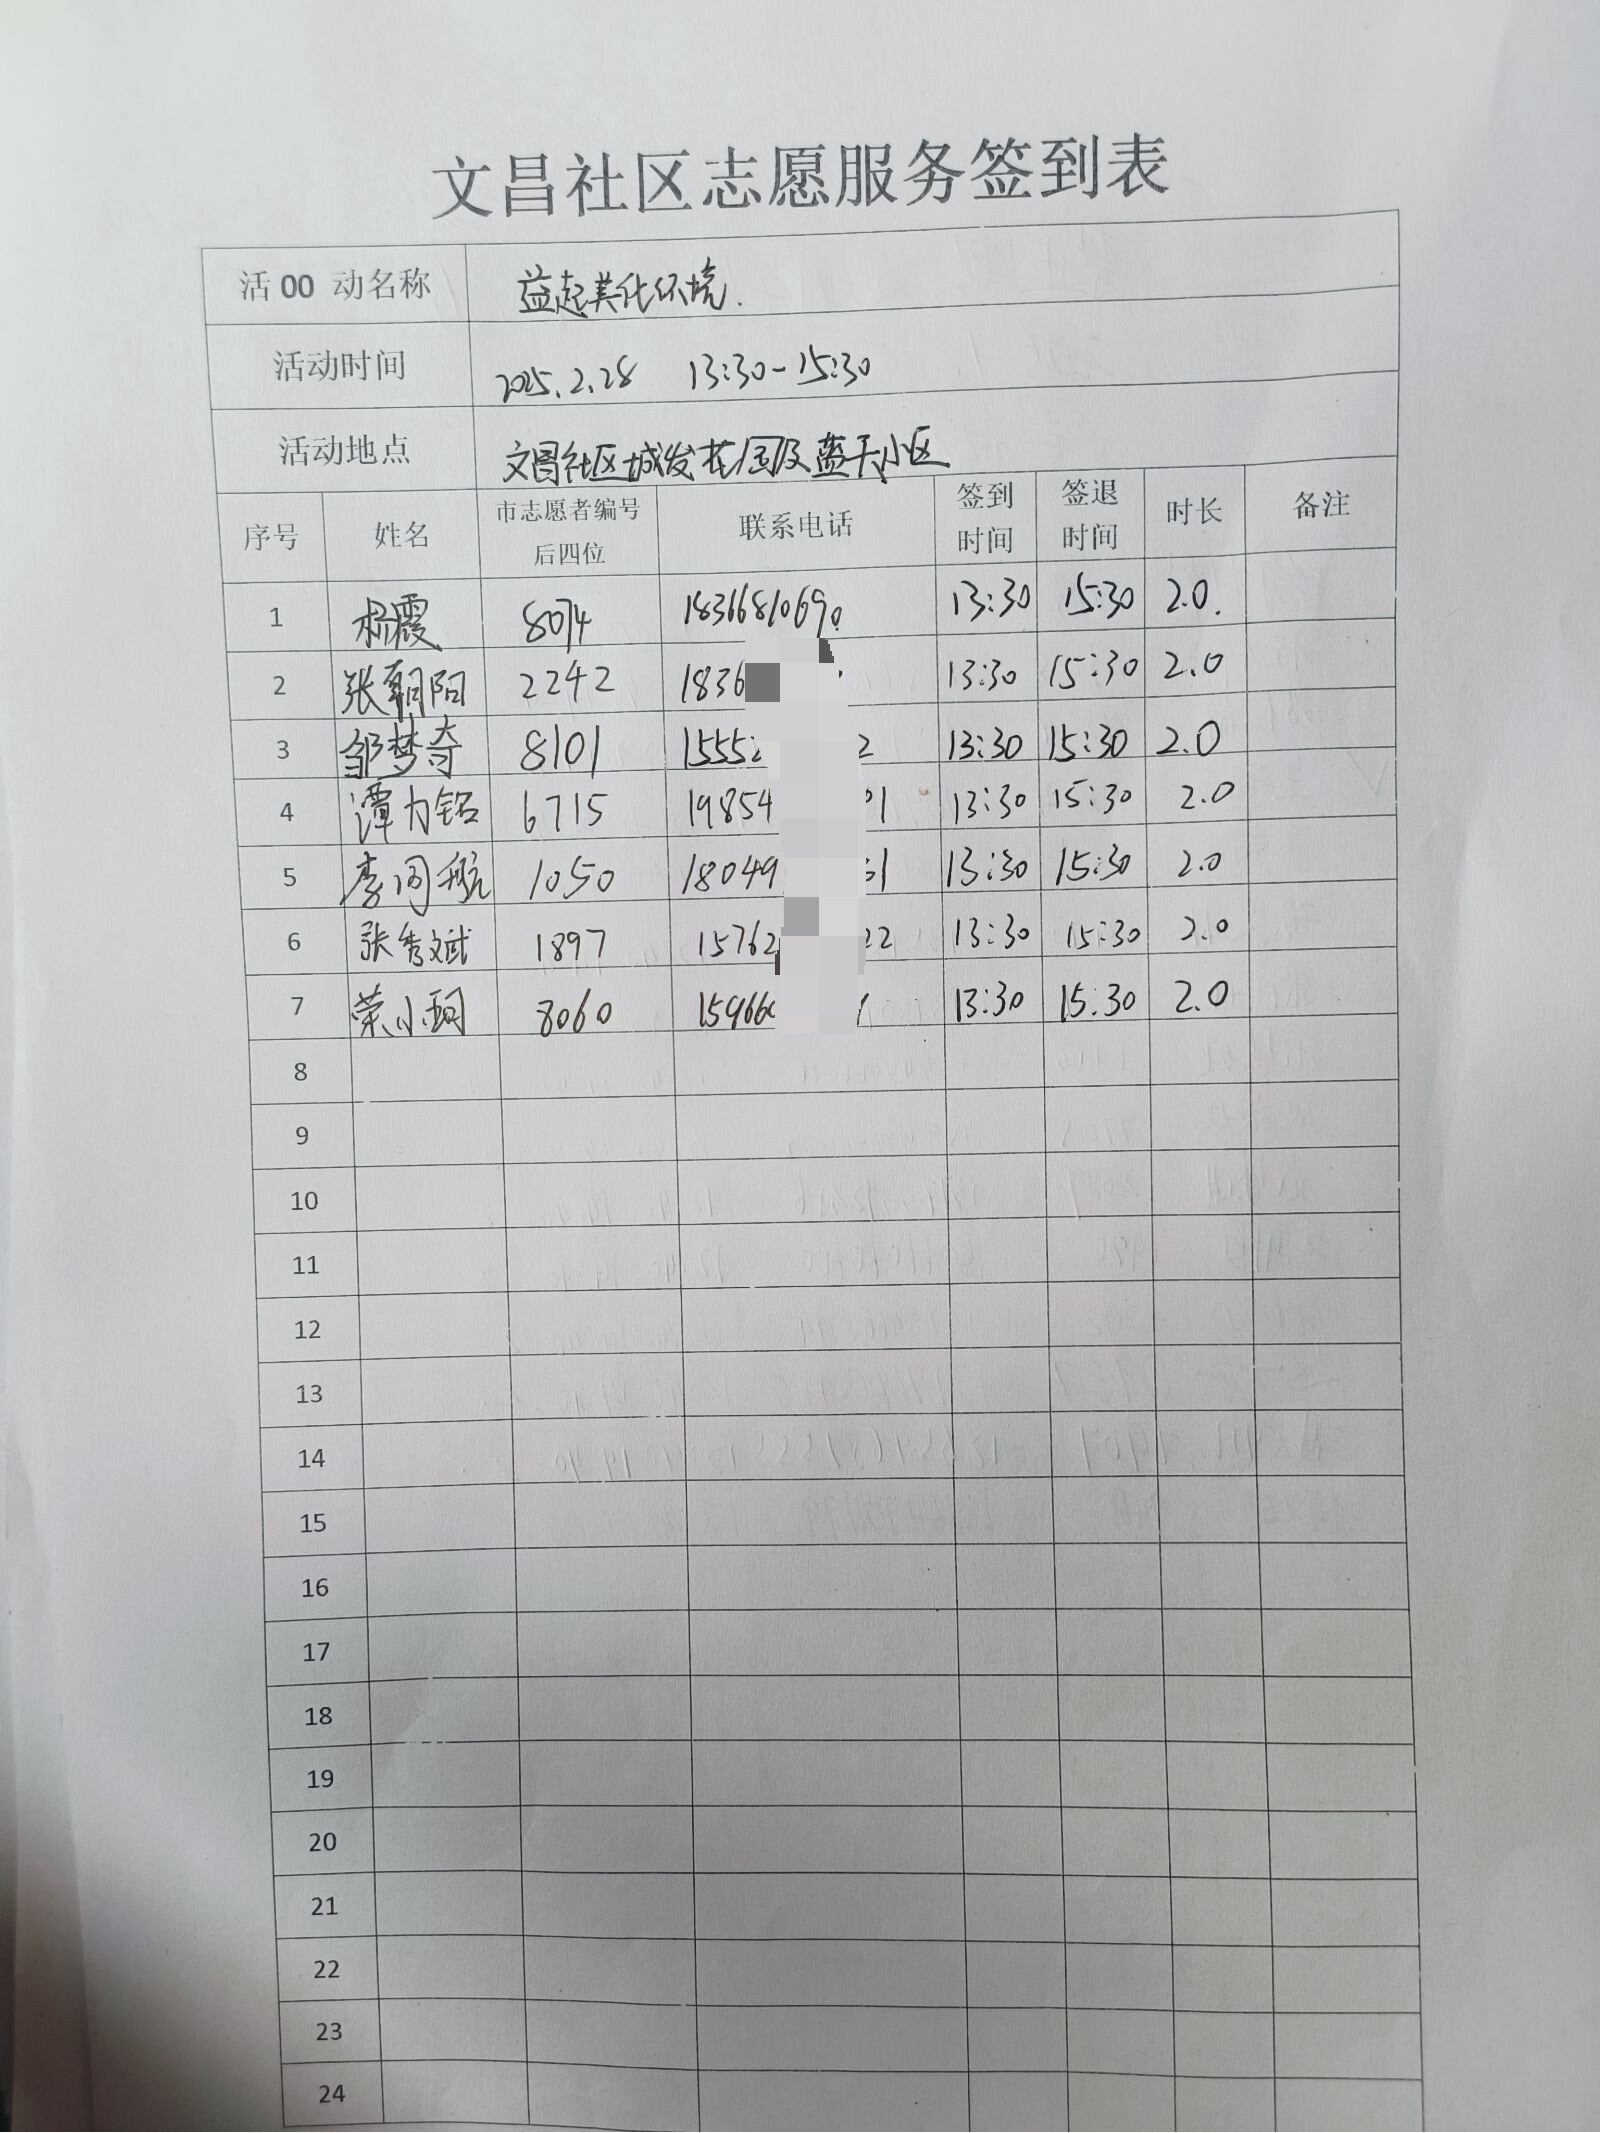 文昌社区志愿服务签到表
活00 动名称 益起美化环境.
活动时间 2025.2.28 13:30-15:30
活动地点 文昌社区城发花园及蓝天小区
序号 姓名 市志愿者编号后四位 联系电话 签到时间 签退时间 时长 备注
1 杨霞 8074 18366810690 13:30 15:30 2.0.
2 张朝阳 2242 1836 13:30 15:30 2.0
3 邹梦奇 8101 1555 2 13:30 15:30 2.0
4 谭力铭 6715 19854 1 13:30 15:30 2.0
5 李同航 1050 18049 1 13:30 15:30 2.0
6 张秀斌 1897 15762 22 13:30 15:30 2.0
7 荣小珂 8060 15966 13:30 15:30 2.0
8
9
10
11
12
13
14
15
16
17
18
19
20
21
22
23
24